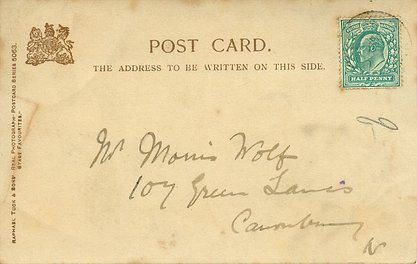 POST CARD.
THE ADDRESS TO BE WRITTEN ON THIS SIDE.
HALF PENNY
RAPHAEL TUCK & SONS' "REAL PHOTOGRAPH" POSTCARD SERIES 5063.
"STAGE FAVOURITES."
Mr Morris Wolf
107 Green Lanes
Canonbury
N